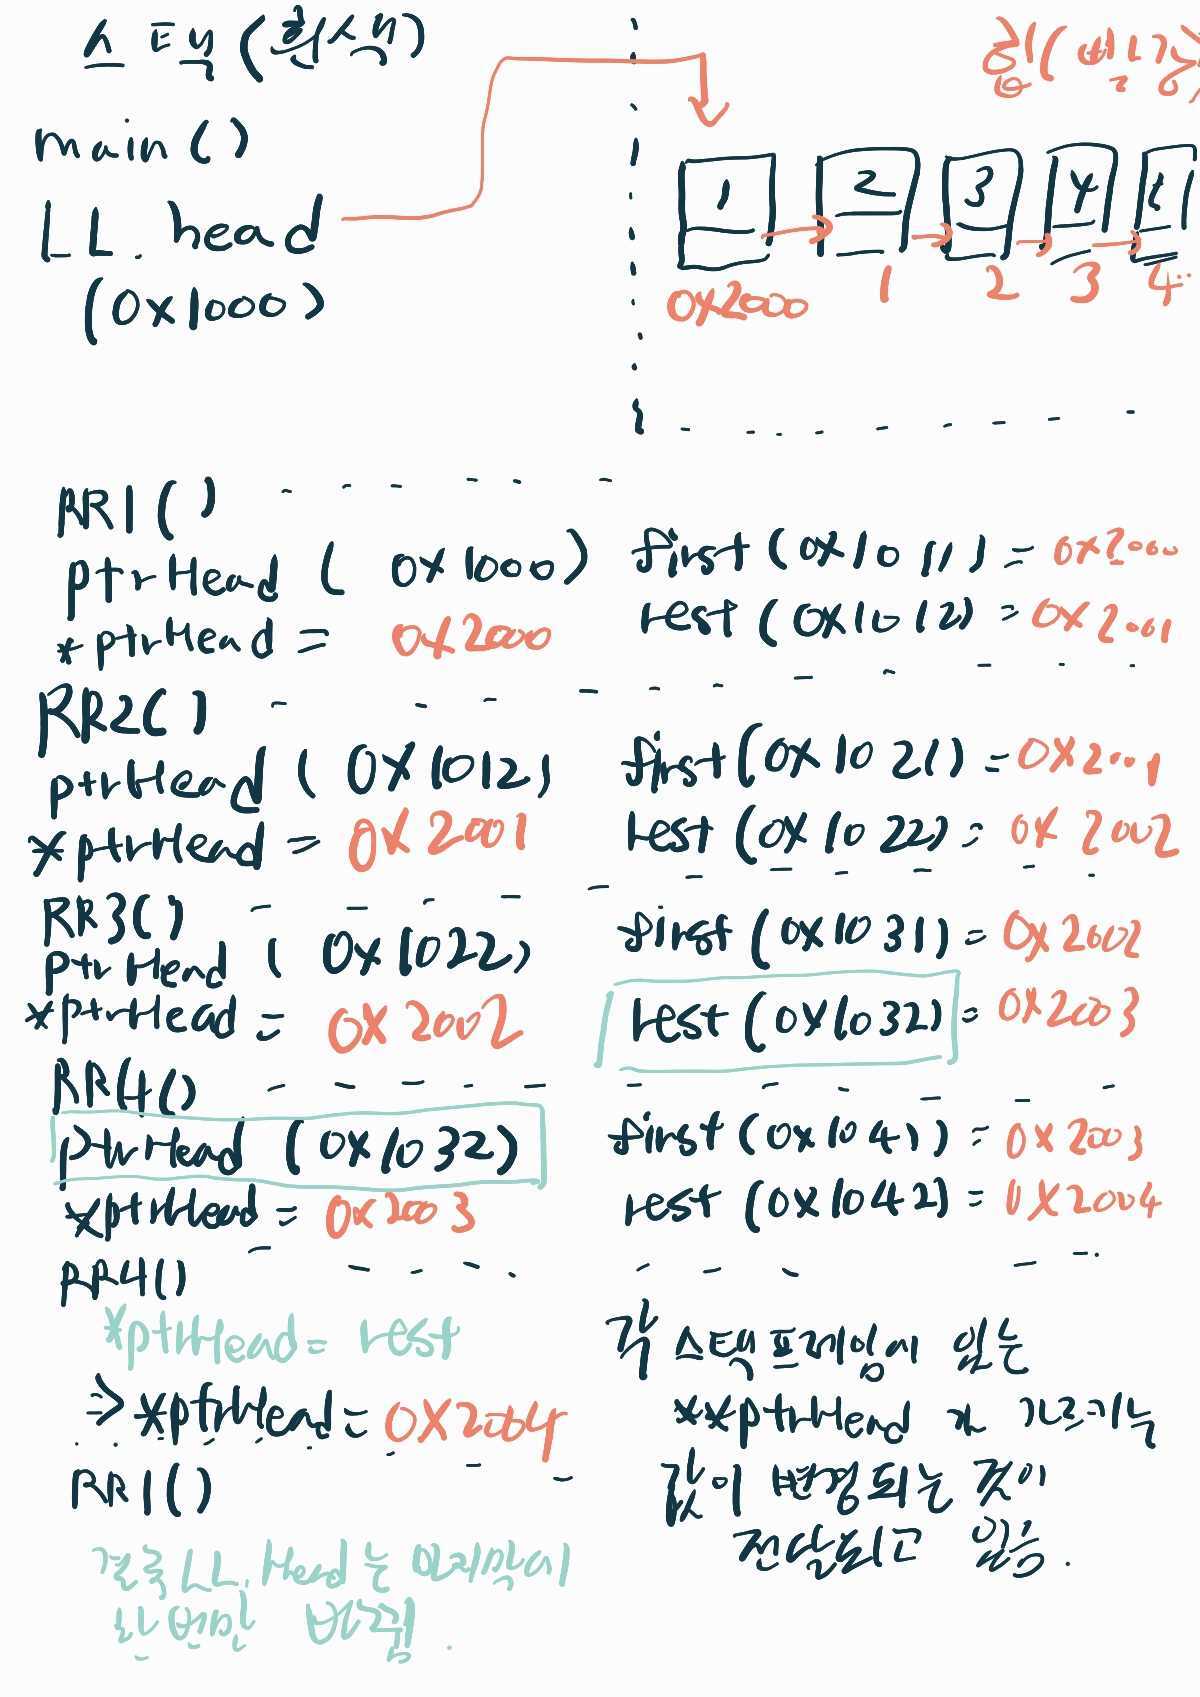 스택(흰색)
힙(빨강)
main()
LL.head
(0x1000)
1 2 3 4
0x2000 1 2 3 4
RR1()
ptrHead (0x1000)
*ptrHead = 0x2000
first(0x1011) = 0x2000
rest(0x1012) = 0x2001
RR2()
ptrHead (0x1012)
*ptrHead = 0x2001
first(0x1021) = 0x2001
rest(0x1022) = 0x2002
RR3()
ptrHead (0x1022)
*ptrHead = 0x2002
first(0x1031) = 0x2002
rest(0x1032) = 0x2003
RR4()
ptrHead (0x1032)
*ptrHead = 0x2003
first(0x1041) = 0x2003
rest(0x1042) = 0x2004
RR4()
*ptrHead = rest
=> *ptrHead = 0x2004
RR1()
결국 LL.Head는 마지막에
한번만 바뀜.
각 스택프레임에 있는
**ptrHead가 가르키는
값이 변경되는 것이
전달되고 있음.